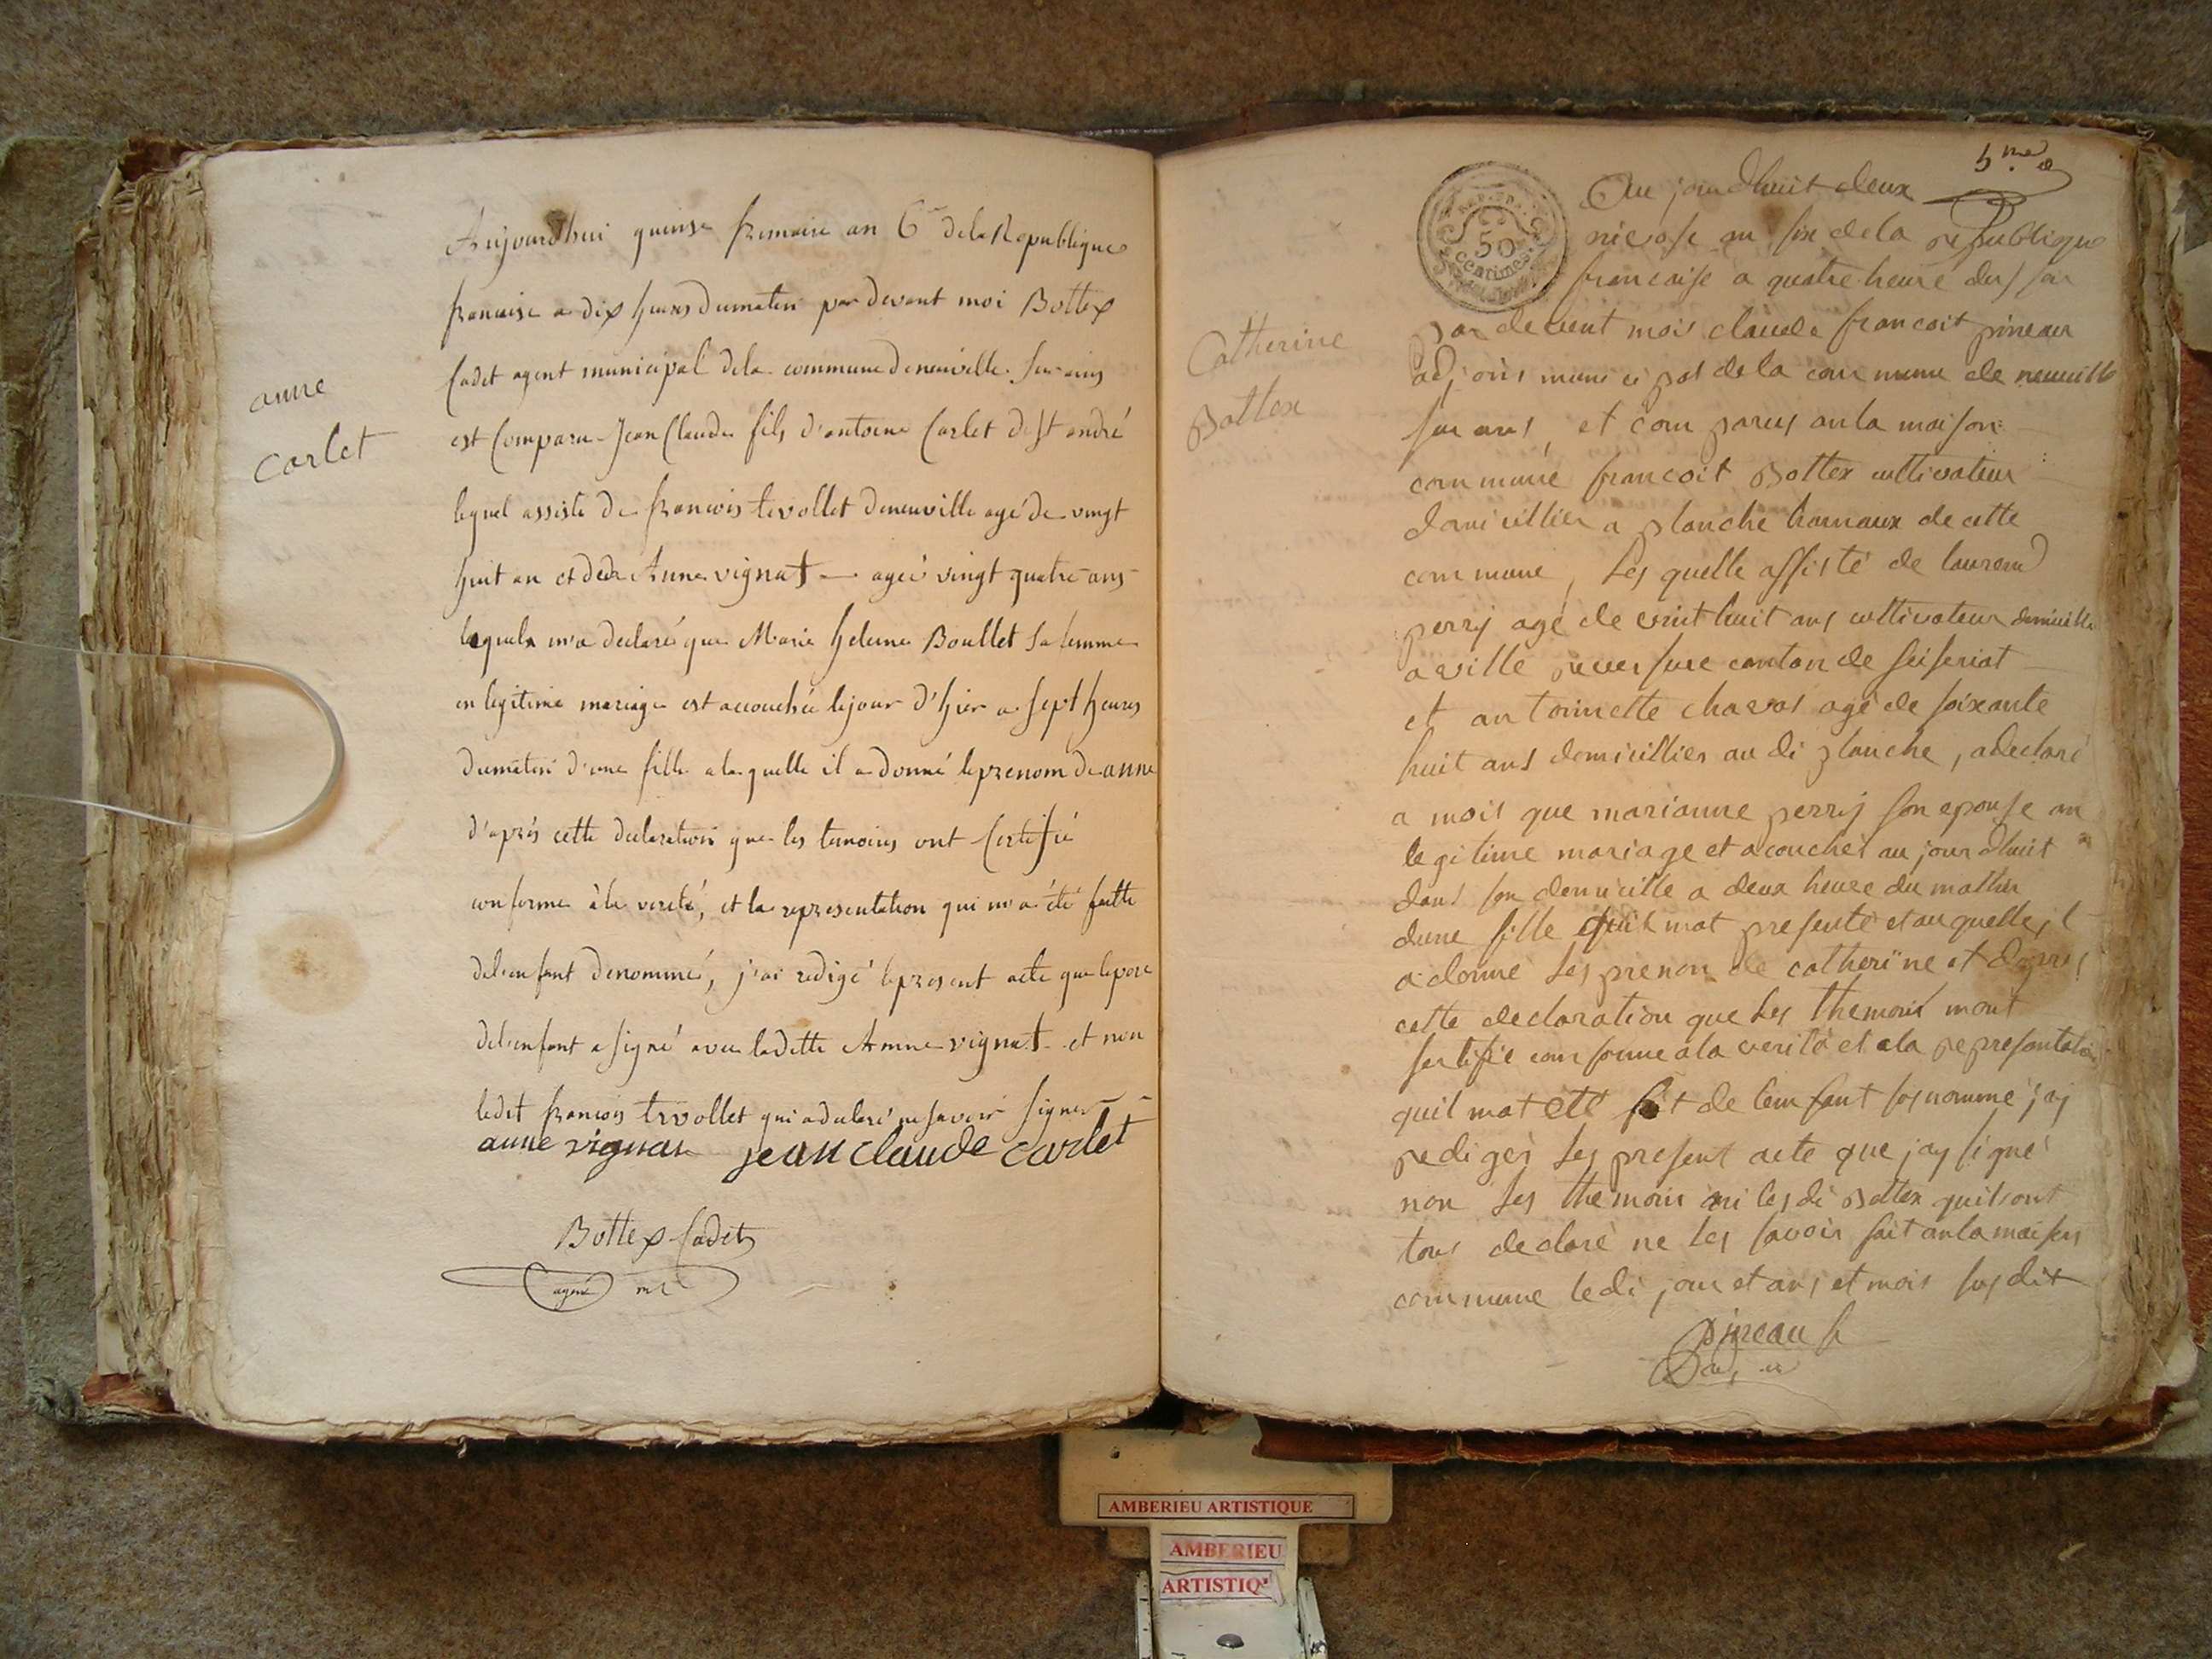 anne
carlet
Aujourd'hui quinse frimaire an 6me de la Republique
francaise a dix heures du matin par devant moi Bottex
Cadet agent municipal de la commune de neuville sur ains
est Comparu Jean Claude fils d'antoine Carlet de St andré
lequel assisté de francois tevollet de neuville agé de vingt
huit an et de Anne vignat agée vingt quatre ans
lequel m'a declaré que Marie helene Boullet sa femme
en legitime mariage est accouchée le jour d'hier a sept heures
du matin d'une fille a la quelle il a donné le prenom de anne
d'après cette declaration que les temoins ont Certifié
conforme à la verité, et la representation qui m'a été faitte
de l'enfant denommé, j'ai redigé le present acte que le pere
de l'enfant a signé avec laditte Anne vignat et non
ledit francois trvollet qui a declaré ne savoir signer
anne vignat jean claude carlet
Bottex Cadet
agent ml
5me
REP. FR.
50
centimes
Catherine
Bottex
Au jour dhuit deux
nivose an six de la republique
francaise a quatre heure du soir
par devent mois claude francoit pineau
adjoins municipal de la commune de neuville
sur ans, et comparus an la maison
commune francoit Bottex cultivateur
domicillier a planche hamaux de cette
commune, les quelle assisté de laurend
perrij agé de vint huit ans cultivateur domicille
a ville recersure canton de seiseriat
et antoinette chavat agé de soixante
huit ans domicillier au di planche, a declaré
a mois que marianne perrij son epouse an
legitime mariage et acouchés au jour dhuit
dans son domicille a deux heure du mathin
dune fille quil mat presenté et au quelle il
a donné les prenon de catherine et dapres
cette declaration que les themoins mont
sertifié conforme a la verité et a la representation
quil mat été fait de lemfant susnommé jaj
redigér les present acte que jay signé
non les themoin ni les di Bottex quil sont
tous declaré ne les savoir fait an la maison
commune le di jour et ans et mois susdit
pineau
adj
AMBERIEU ARTISTIQUE
AMBERIEU
ARTISTIQ